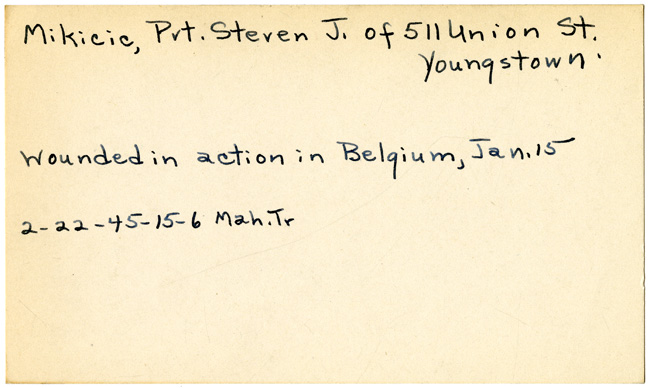 Mikicic, Pvt. Steven J. of 511 Union St.
Youngstown.
Wounded in action in Belgium, Jan. 15
2-22-45-15-6 Mah. Tr